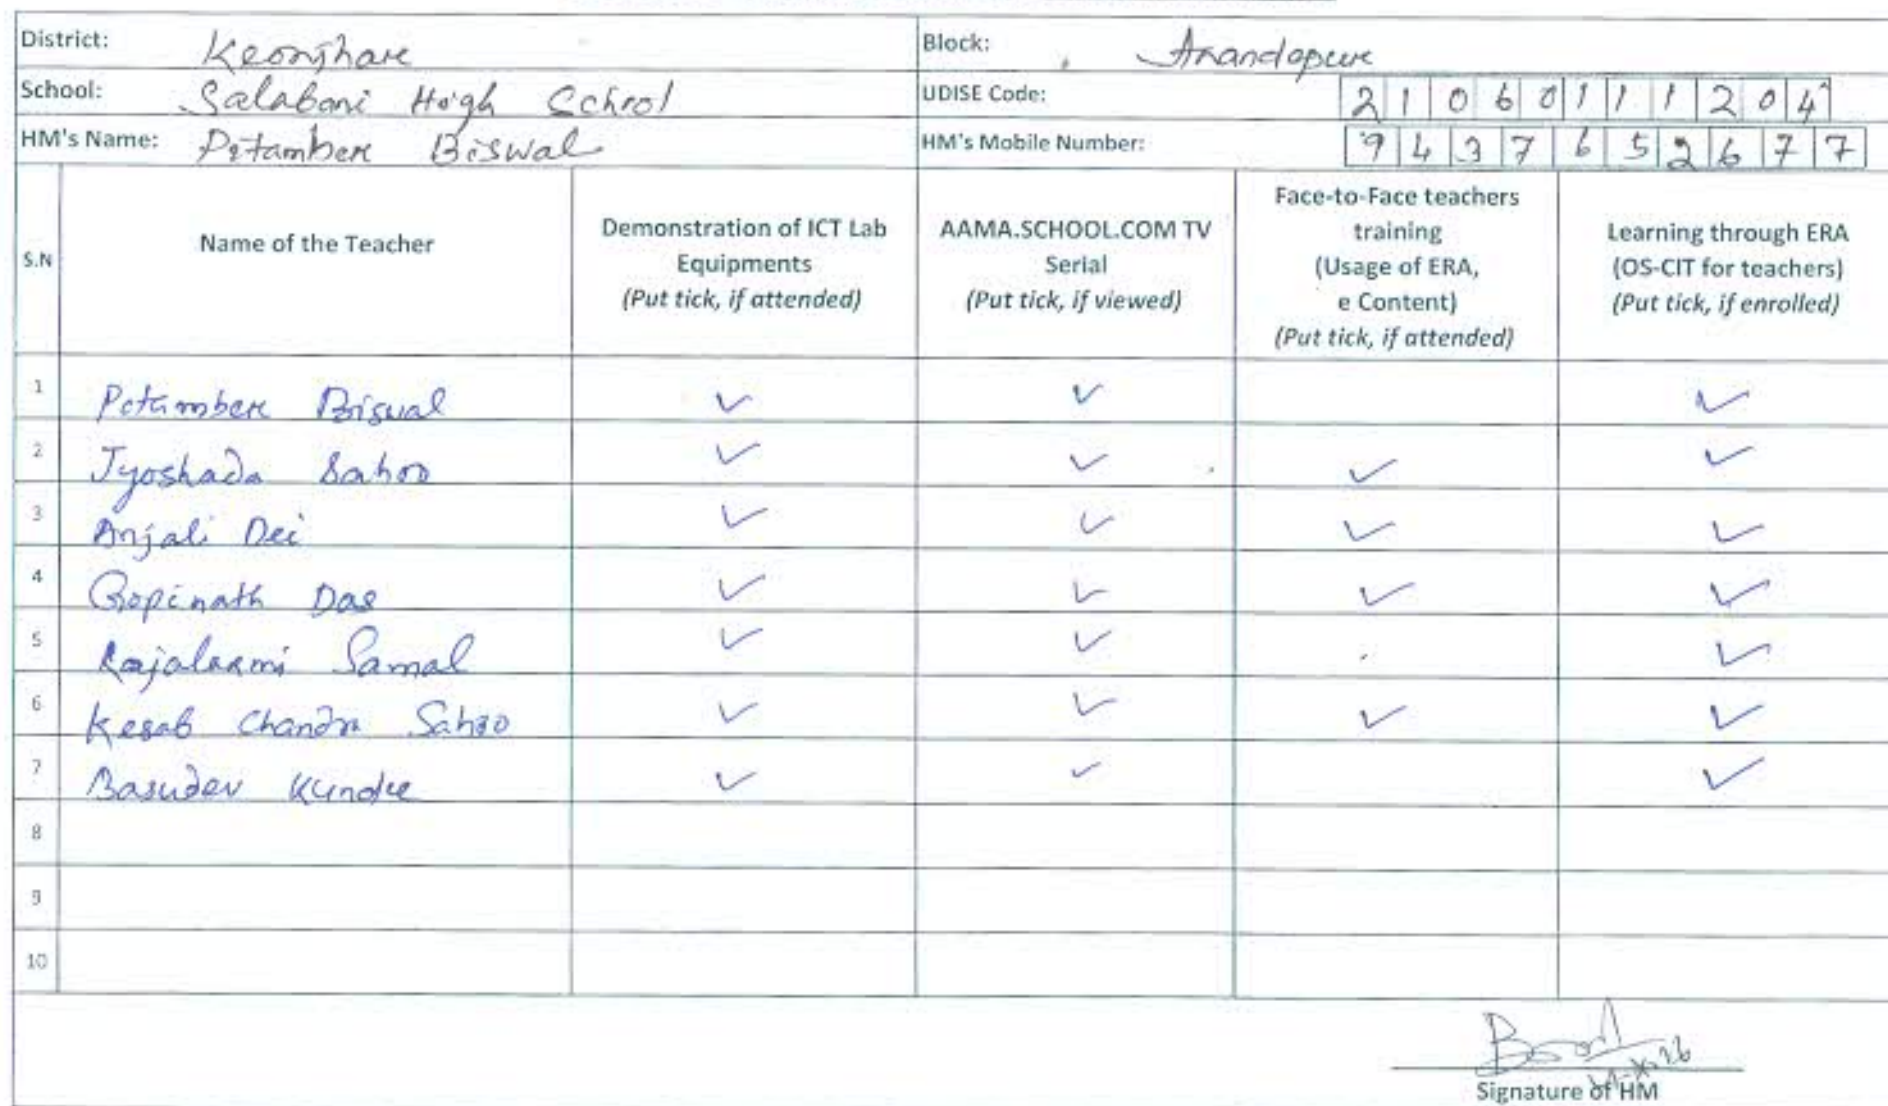 District: Keonjhare Block: Anandapure
School: Salabani High School UDISE Code: 2 1 0 6 0 1 1 1 2 0 4
HM's Name: Pitambere Biswal HM's Mobile Number: 9 4 3 7 6 5 2 6 7 7
S.N Name of the Teacher Demonstration of ICT Lab Equipments (Put tick, if attended) AAMA.SCHOOL.COM TV Serial (Put tick, if viewed) Face-to-Face teachers training (Usage of ERA, e Content) (Put tick, if attended) Learning through ERA (OS-CIT for teachers) (Put tick, if enrolled)
1 Pitambere Biswal ✓ ✓ ✓
2 Jyoshada Sahoo ✓ ✓ ✓ ✓
3 Anjali Dei ✓ ✓ ✓ ✓
4 Gopinath Das ✓ ✓ ✓ ✓
5 Rajalaxmi Samal ✓ ✓ ✓
6 Kesab Chandra Sahoo ✓ ✓ ✓ ✓
7 Basudev Kundu ✓ ✓ ✓
8
9
10
Signature of HM